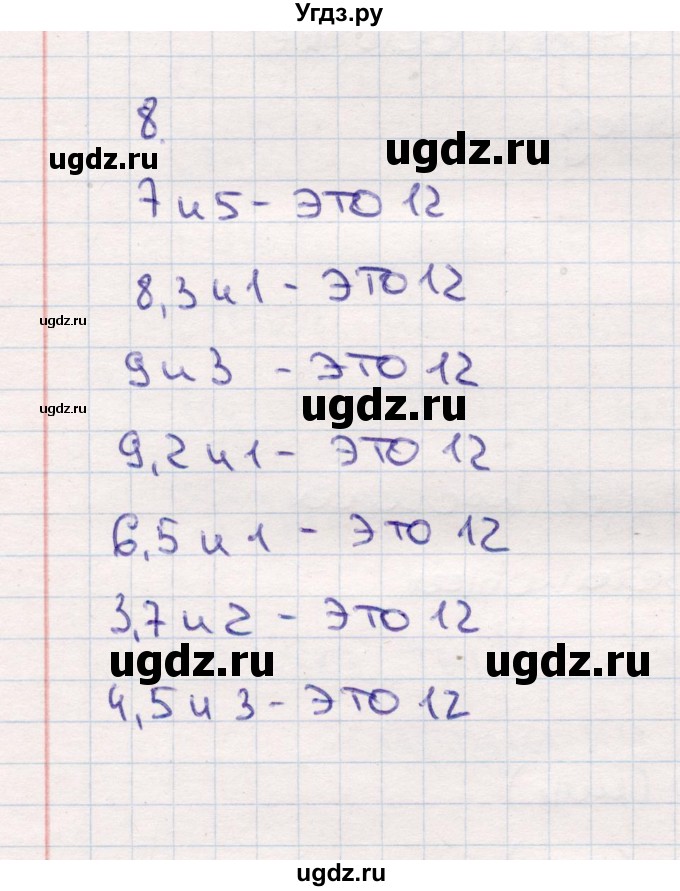 Угдз.ру
8.
ugdz.ru
ugdz.ru
7 и 5 - это 12
8,3 и 1 - это 12
ugdz.ru
9 и 3 - это 12
ugdz.ru
ugdz.ru
9,2 и 1 - это 12
6,5 и 1 - это 12
3,7 и 2 - это 12
ugdz.ru
ugdz.ru
4,5 и 3 - это 12
ugdz.ru